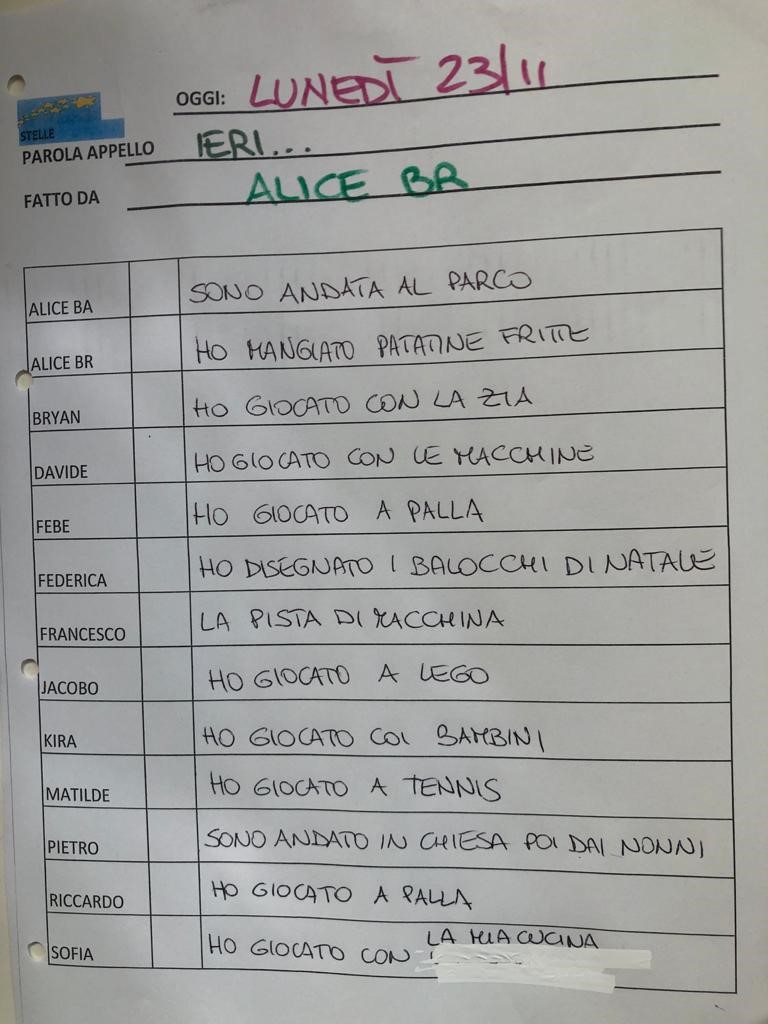 OGGI: LUNEDÌ 23/11
STELLE
PAROLA APPELLO IERI...
FATTO DA ALICE BR
ALICE BA SONO ANDATA AL PARCO
ALICE BR HO MANGIATO PATATINE FRITTE
BRYAN HO GIOCATO CON LA ZIA
DAVIDE HO GIOCATO CON LE MACCHINE
FEBE HO GIOCATO A PALLA
FEDERICA HO DISEGNATO I BALOCCHI DI NATALE
FRANCESCO LA PISTA DI MACCHINA
JACOBO HO GIOCATO A LEGO
KIRA HO GIOCATO COI BAMBINI
MATILDE HO GIOCATO A TENNIS
PIETRO SONO ANDATO IN CHIESA POI DAI NONNI
RICCARDO HO GIOCATO A PALLA
SOFIA HO GIOCATO CON LA MIA CUCINA